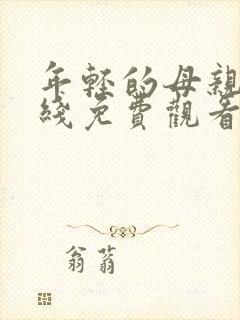 年轻的母親
綫免費觀看
翁蓊